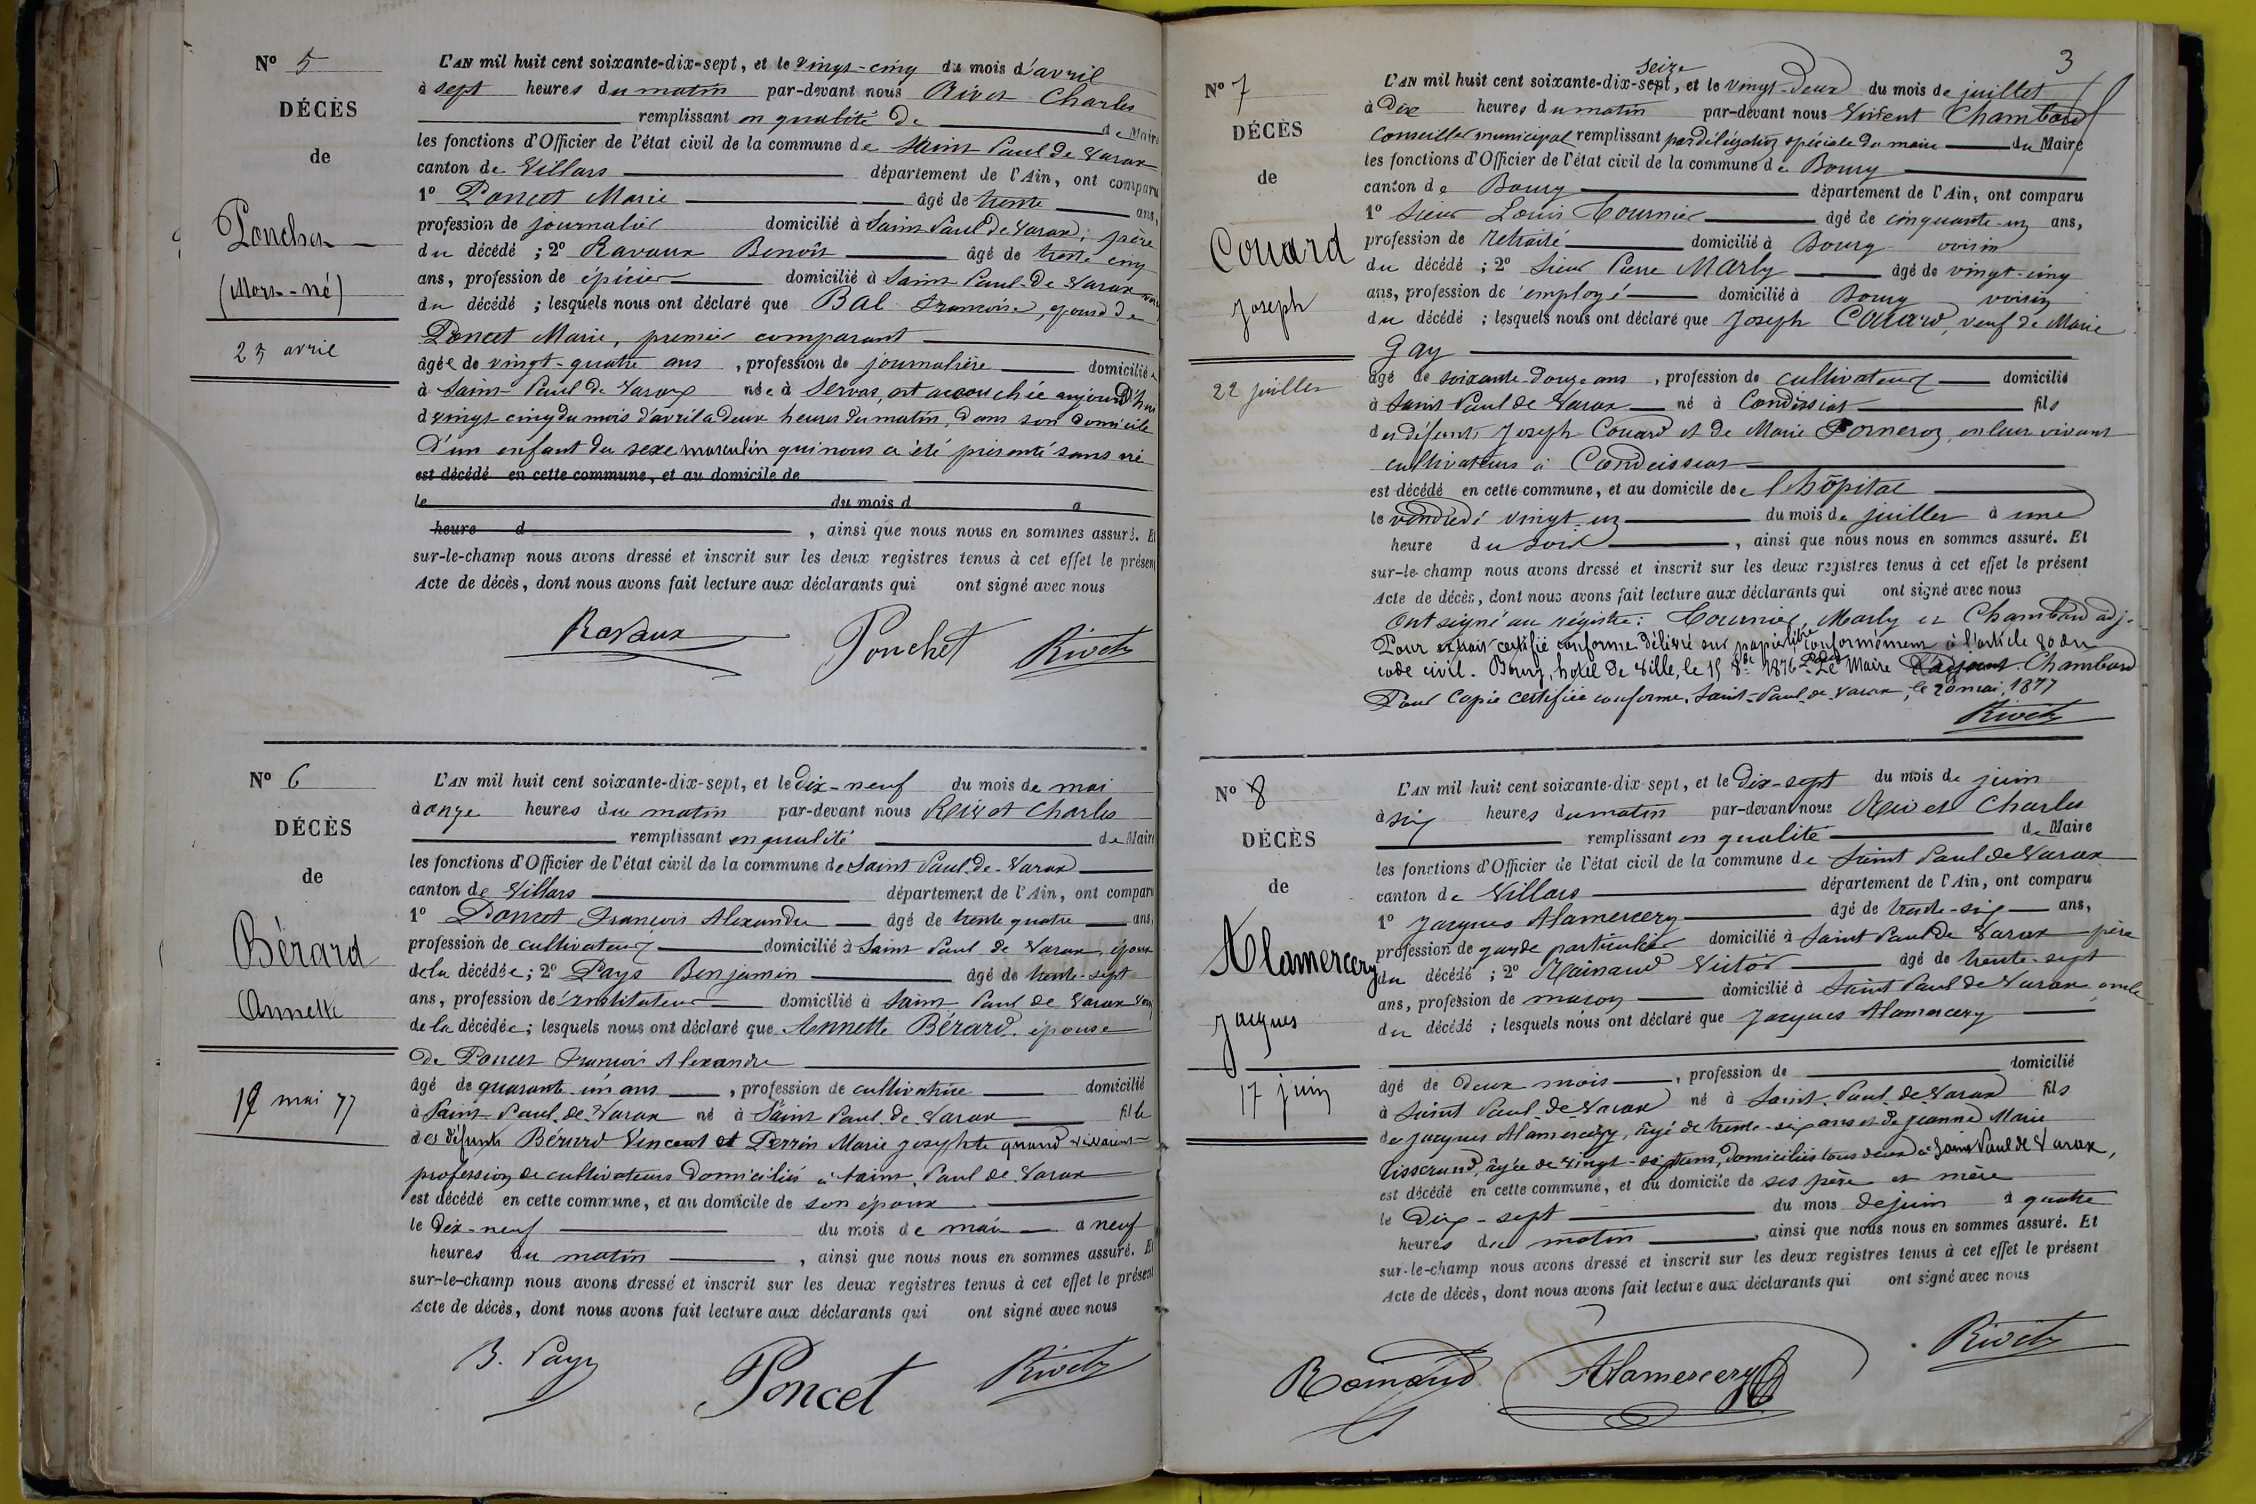 Nº 5
DÉCÈS
de
Ponchet
(Mort-né)
25 avril
L'AN mil huit cent soixante-dix-sept, et le vingt-cinq du mois d'avril
à sept heures du matin par-devant nous Rivet Charles
remplissant en qualité de de Maire
les fonctions d'Officier de l'état civil de la commune de Saint Paul de Varax
canton de Villars département de l'Ain, ont comparu
1º Poncet Marie âgé de trente ans,
profession de journalier domicilié à Saint Paul de Varax, père
du décédé ; 2º Ravaux Benoît âgé de trente cinq
ans, profession de épicier domicilié à Saint Paul de Varax
du décédé ; lesquels nous ont déclaré que Bal Françoise, épouse de
Poncet Marie, premier comparant
âgée de vingt-quatre ans, profession de journalière domiciliée
à Saint Paul de Varax née à Servas, est accouchée aujourd'hui
vingt-cinq du mois d'avril à deux heures du matin, dans son domicile
d'un enfant du sexe masculin qui nous a été présenté sans vie
est décédé en cette commune, et au domicile de
le du mois d à
heure d , ainsi que nous nous en sommes assuré. Et
sur-le-champ nous avons dressé et inscrit sur les deux registres tenus à cet effet le présent
Acte de décès, dont nous avons fait lecture aux déclarants qui ont signé avec nous
Ravaux Ponchet Rivet
Nº 6
DÉCÈS
de
Bérard
Annette
19 mai 77
L'AN mil huit cent soixante-dix-sept, et le dix-neuf du mois de mai
à onze heures du matin par-devant nous Rivet Charles
remplissant en qualité de Maire
les fonctions d'Officier de l'état civil de la commune de Saint Paul-de-Varax
canton de Villars département de l'Ain, ont comparu
1º Poncet François Alexandre âgé de trente quatre ans,
profession de cultivateur domicilié à Saint Paul de Varax, époux
de la décédée ; 2º Pays Benjamin âgé de trente-sept
ans, profession de instituteur domicilié à Saint Paul de Varax
de la décédée ; lesquels nous ont déclaré que Annette Bérard, épouse
de Poncet François Alexandre
âgé de quarante-un ans, profession de cultivatrice domicilié
à Saint-Paul-de-Varax né à Saint Paul de Varax fille
des défunts Bérard Vincent et Perrin Marie Josephte quand vivaient
profession de cultivateurs domiciliés à Saint Paul de Varax
est décédé en cette commune, et au domicile de son époux
le dix-neuf du mois de mai à neuf
heures du matin , ainsi que nous nous en sommes assuré. Et
sur-le-champ nous avons dressé et inscrit sur les deux registres tenus à cet effet le présent
Acte de décès, dont nous avons fait lecture aux déclarants qui ont signé avec nous
B. Pays Poncet Rivet
3
Nº 7
DÉCÈS
de
Couard
Joseph
22 juillet
seize
L'AN mil huit cent soixante-dix-sept, et le vingt-deux du mois de juillet
à dix heures du matin par-devant nous Vincent Chambard
Conseiller municipal remplissant par délégation spéciale du maire du Maire
les fonctions d'Officier de l'état civil de la commune de Bourg
canton de Bourg département de l'Ain, ont comparu
1º Sieur Louis Tournier âgé de cinquante-un ans,
profession de retraité domicilié à Bourg voisin
du décédé ; 2º Sieur Pierre Marly âgé de vingt-cinq
ans, profession de employé domicilié à Bourg voisin
du décédé ; lesquels nous ont déclaré que Joseph Couard, veuf de Marie
Gay
âgé de soixante-douze ans, profession de cultivateur domicilié
à Saint Paul de Varax né à Condeissiat fils
des défunts Joseph Couard et de Marie Porneroz, en leur vivant
cultivateurs à Condeissiat
est décédé en cette commune, et au domicile de l'hôpital
le vendredi vingt-un du mois de juillet à une
heure du soir , ainsi que nous nous en sommes assuré. Et
sur-le-champ nous avons dressé et inscrit sur les deux registres tenus à cet effet le présent
Acte de décès, dont nous avons fait lecture aux déclarants qui ont signé avec nous
Ont signé au régistre : Tournier, Marly et Chambard adj.
Pour extrait certifié conforme délivré sur papier libre conformément à l'article 80 du
code civil. Bourg, hotel de ville, le 15 8bre 1876 Le Maire Chambard
Pour Copie certifiée conforme, Saint-Paul-de-Varax, le 20 mai 1877
Rivet
Nº 8
DÉCÈS
de
Alamercery
Jacques
17 juin
L'AN mil huit cent soixante-dix-sept, et le dix-sept du mois de juin
à six heures du matin par-devant nous Rivet Charles
remplissant en qualité de Maire
les fonctions d'Officier de l'état civil de la commune de Saint Paul de Varax
canton de Villars département de l'Ain, ont comparu
1º Jacques Alamercery âgé de trente-six ans,
profession de garde particulier domicilié à Saint Paul de Varax père
du décédé ; 2º Rainaud Victor âgé de trente-sept
ans, profession de maçon domicilié à Saint Paul de Varax, oncle
du décédé ; lesquels nous ont déclaré que Jacques Alamercery
âgé de deux mois, profession de domicilié
à Saint Paul-de-Varax né à Saint-Paul-de-Varax fils
de Jacques Alamercery, âgé de trente-six ans et de Jeanne Marie
Tisserand, âgée de vingt-sept ans, domiciliés tous deux à Saint Paul de Varax,
est décédé en cette commune, et au domicile de ses père et mère
le dix-sept du mois de juin à quatre
heures du matin , ainsi que nous nous en sommes assuré. Et
sur-le-champ nous avons dressé et inscrit sur les deux registres tenus à cet effet le présent
Acte de décès, dont nous avons fait lecture aux déclarants qui ont signé avec nous
Rainaud Alamercery Rivet